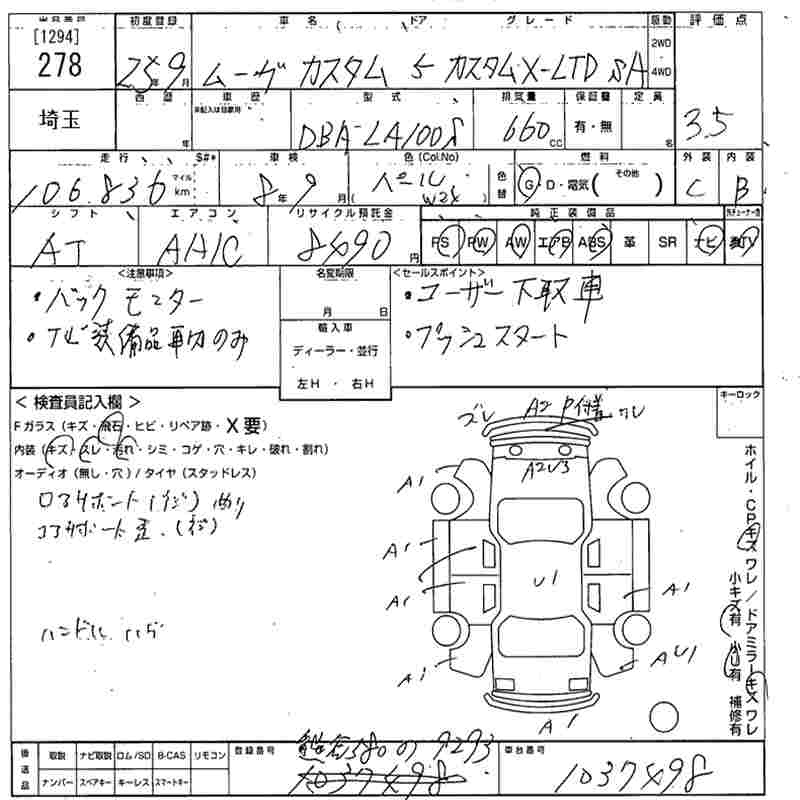 出品番号 初度登録 車名 ドア グレード 駆動 評価点
[1294]
278 25年9月 ムーヴ カスタム 5 カスタムX-LTD SA 2WD 4WD 3.5
埼玉 西暦 年 車歴 未記入は自家用 型式 DBA-LA100S 排気量 660cc 保証書 有・無 定員 名
走行 S#* 車検 色(Col.No) 色替 燃料 外装 内装
106,836 マイル km 8年9月 パール W24 G・D・電気( その他 ) C B
シフト エアコン リサイクル預託金 純正装備品
AT AAC 8490円 PS PW AW エアB ABS 革 SR ナビ TV
<注意事項> 名変期限 <セールスポイント>
・バックモニター 月 日 ・ユーザー下取車
・ナビ装備品車内のみ 輸入車 ・プッシュスタート
ディーラー・並行
左H・右H
<検査員記入欄> キーロック
Fガラス(キズ・飛石・ヒビ・リペア跡・X要)
内装(キズ・スレ・汚れ・シミ・コゲ・穴・キレ・破れ・割れ)
オーディオ(無し・穴)/タイヤ(スタッドレス)
ズレ A2 ワレ
A2U3
A1
A1
A1
U1
A1
A1
AU1
A1
ハンドル ハゲ
ホイル・CPキズ ワレ/ドアミラーキズ ワレ
小キズ有 小U有 補修有
後送品 取説 ナビ取説 ロム/SD B-CAS リモコン 登録番号 車台番号
ナンバー スペアキー キーレス スマートキー 1037498